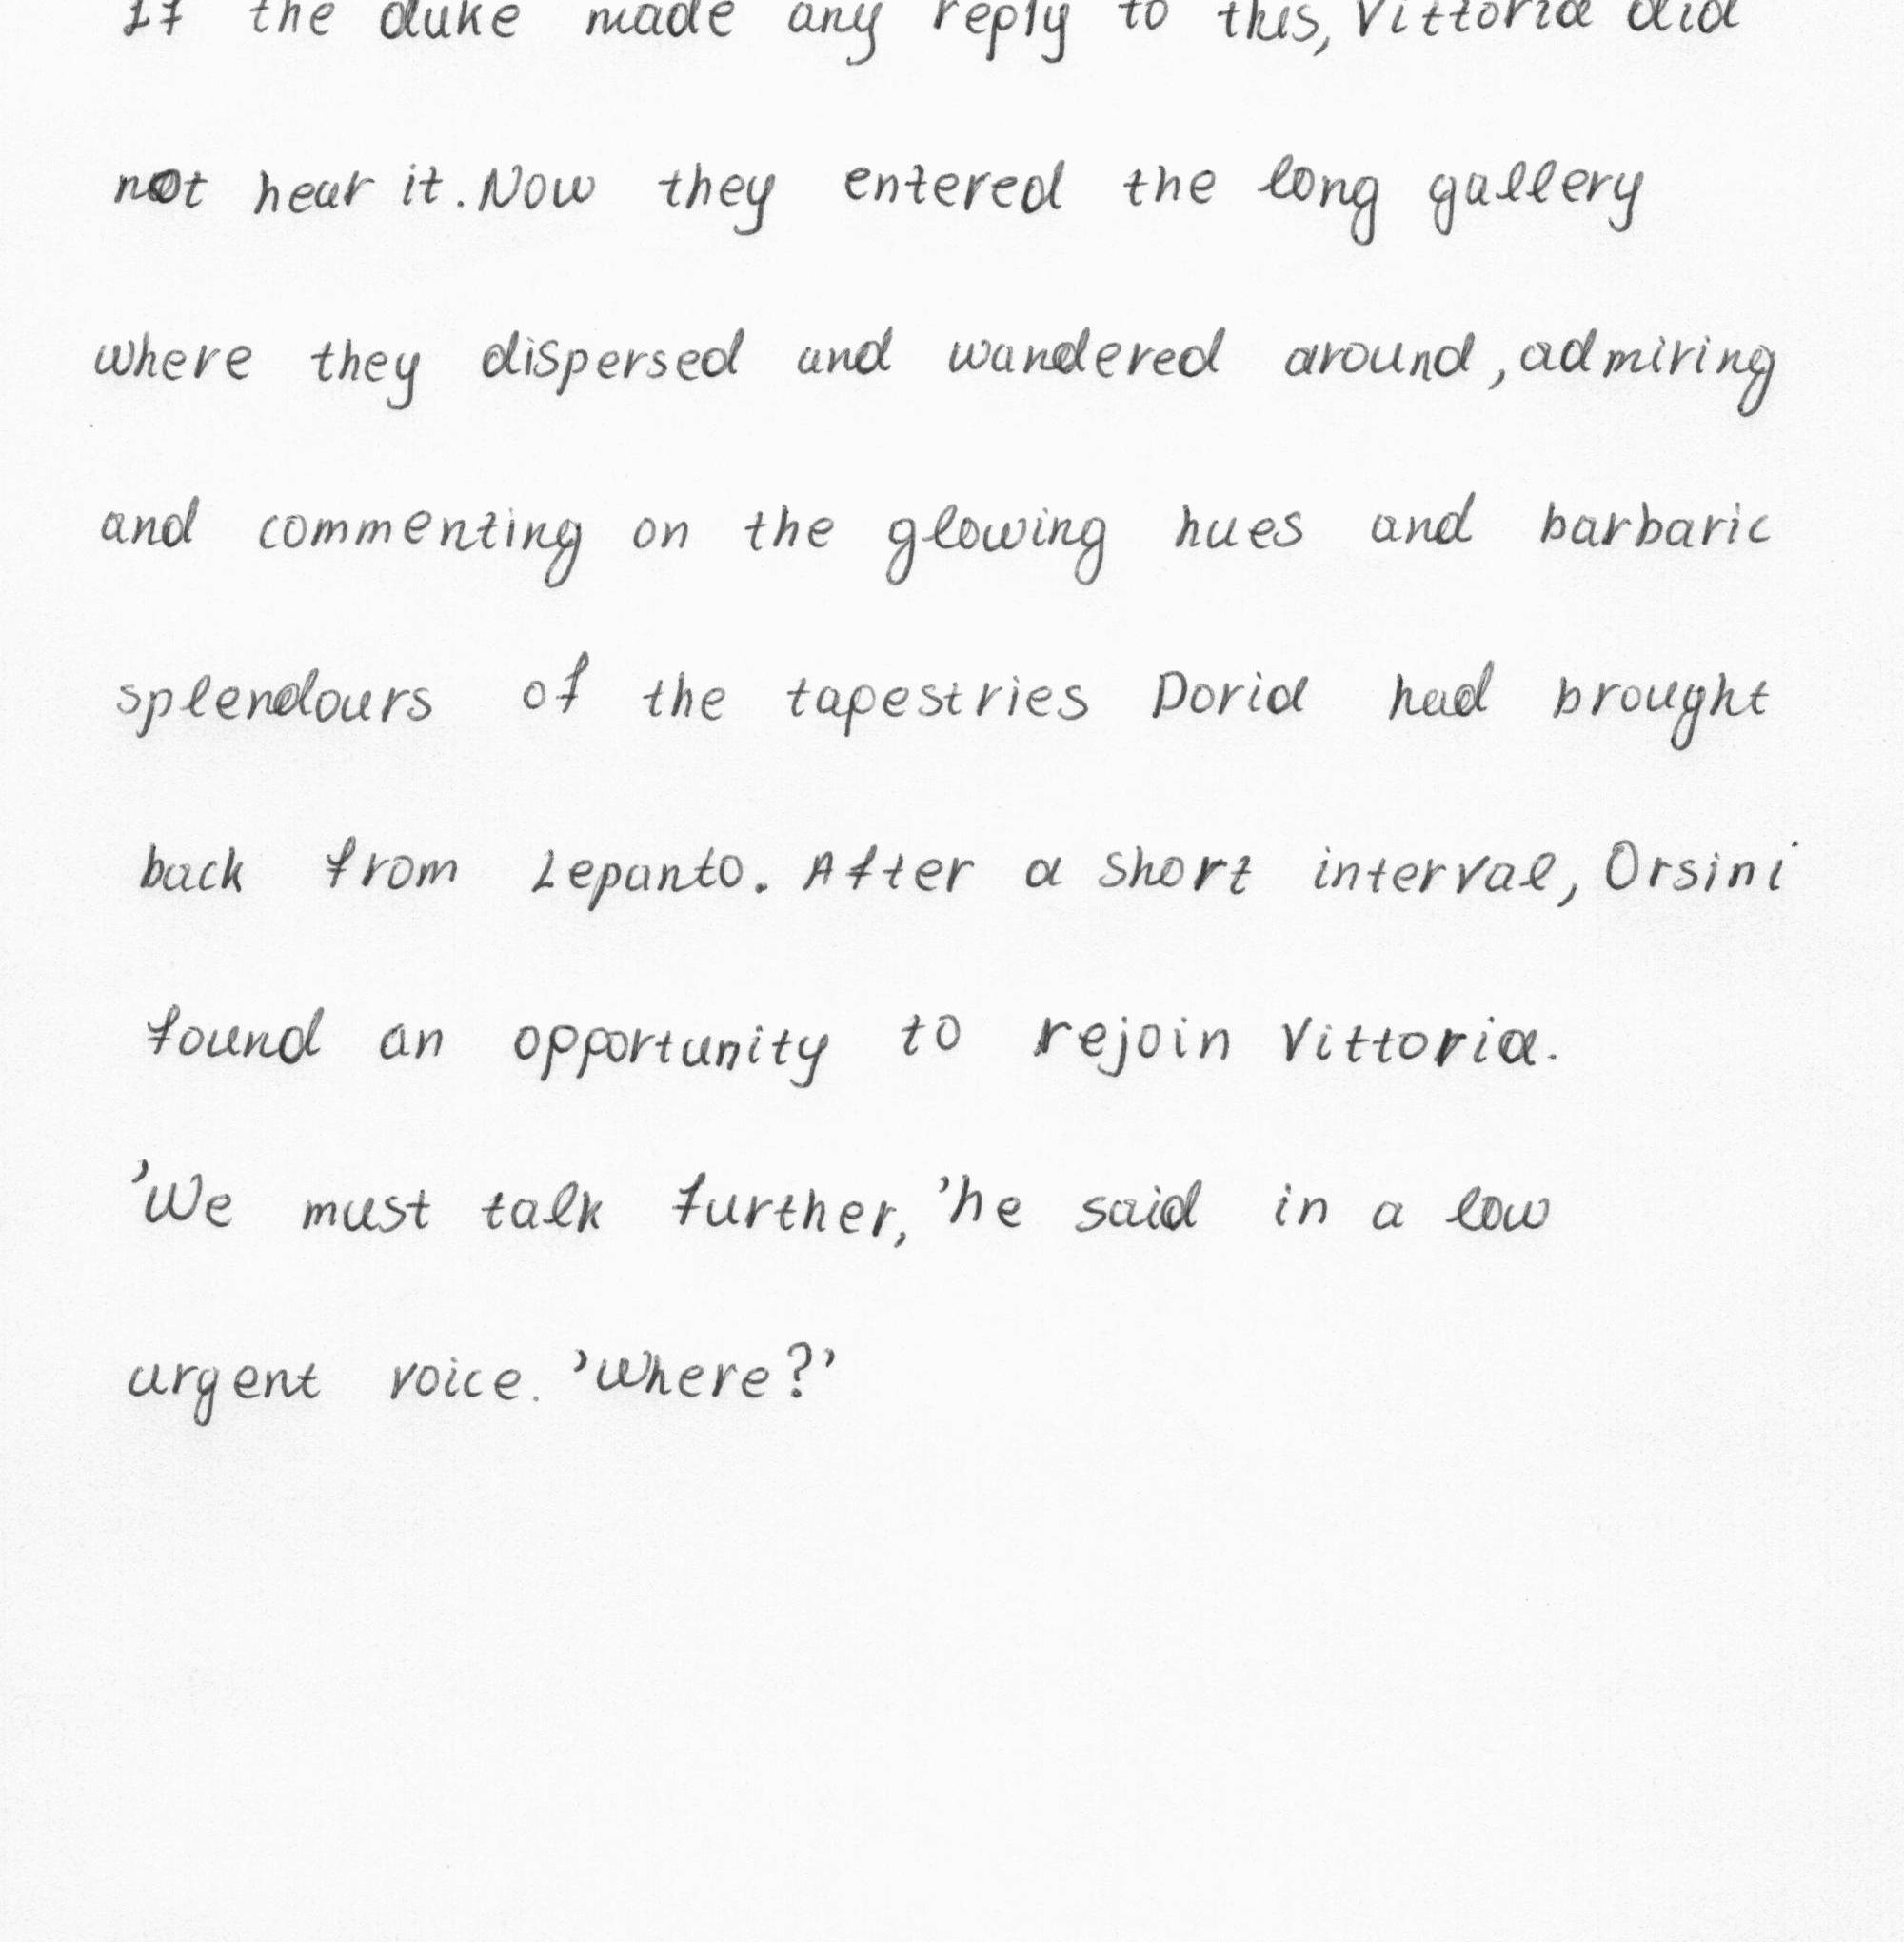 If the duke made any reply to this, Vittoria did
not hear it. Now they entered the long gallery
where they dispersed and wandered around, admiring
and commenting on the glowing hues and barbaric
splendours of the tapestries Doria had brought
back from Lepanto. After a short interval, Orsini
found an opportunity to rejoin Vittoria.
'We must talk further, 'he said in a low
urgent voice. 'Where?'